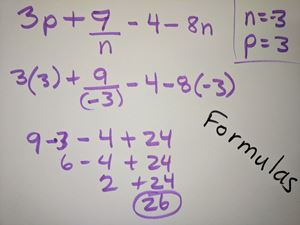 3p + 9/n - 4 - 8n
n=-3
p=3
3(3) + 9/(-3) - 4 - 8(-3)
9 - 3 - 4 + 24
6 - 4 + 24
2 + 24
26
Formulas